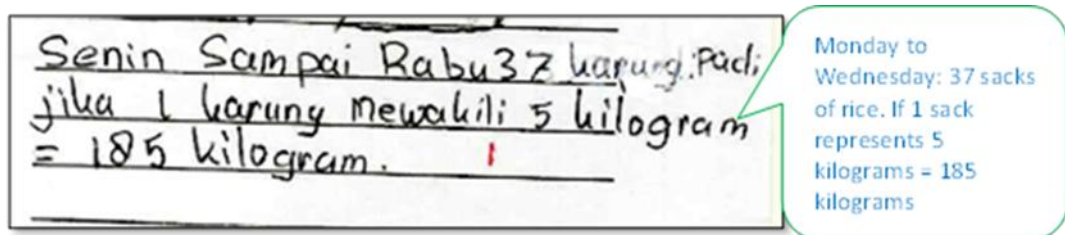 Senin Sampai Rabu 37 karung. Padi,
jika 1 karung mewakili 5 kilogram
= 185 kilogram. 1
Monday to
Wednesday: 37 sacks
of rice. If 1 sack
represents 5
kilograms = 185
kilograms